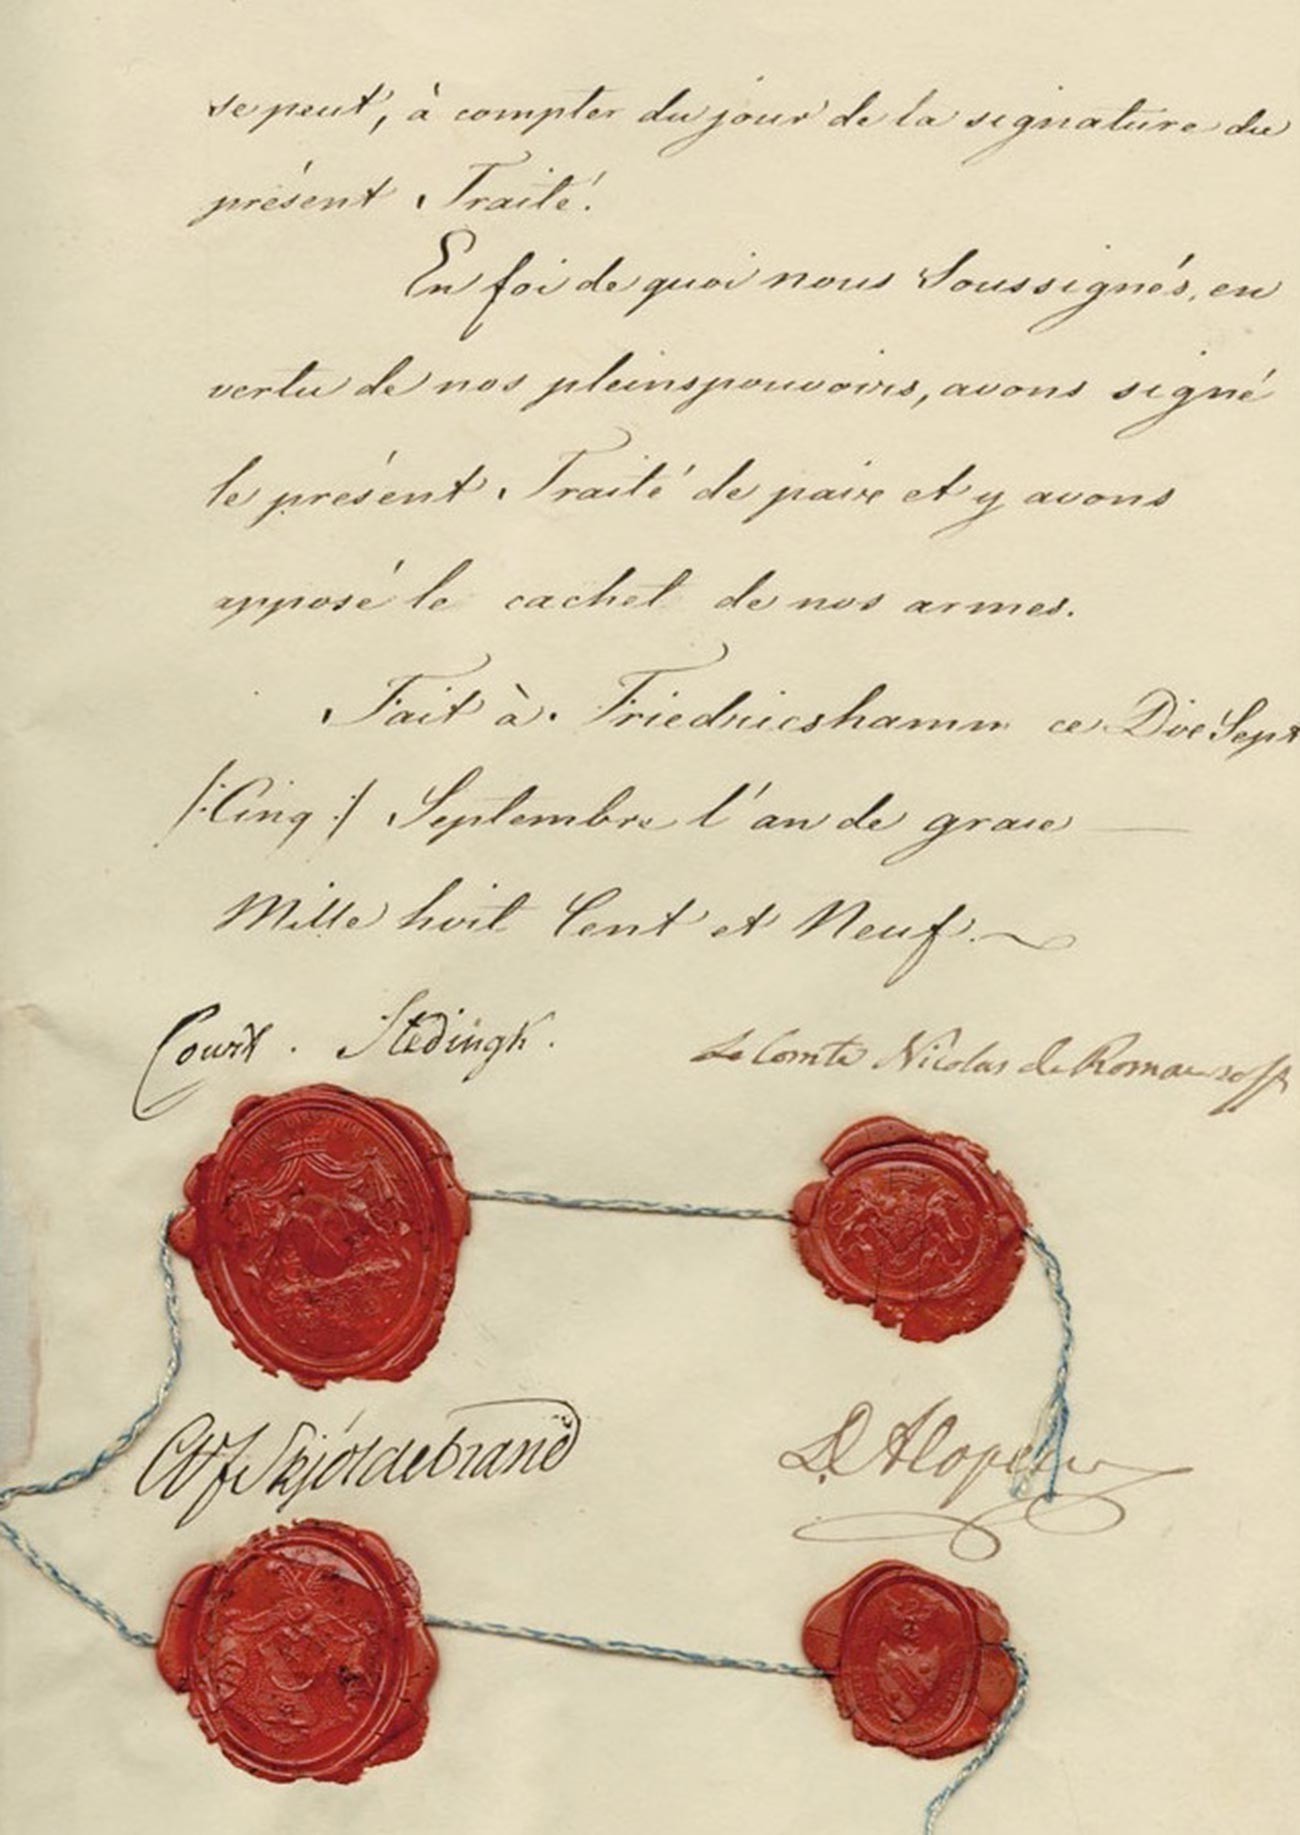 se peut, à compter du jour de la signature du
présent Traité.
En foi de quoi nous Soussignés, en
vertu de nos pleinspouvoirs, avons signé
le présent Traité de paix et y avons
apposé le cachet de nos armes.
Fait à Friedricshamm ce Dix Sept
/: Cinq :/ Septembre l'an de grace
Mille huit Cent et Neuf.
Court Stedingk. Le Comte Nicolas de Romanzoff
Skjöldebrand D Alopeus